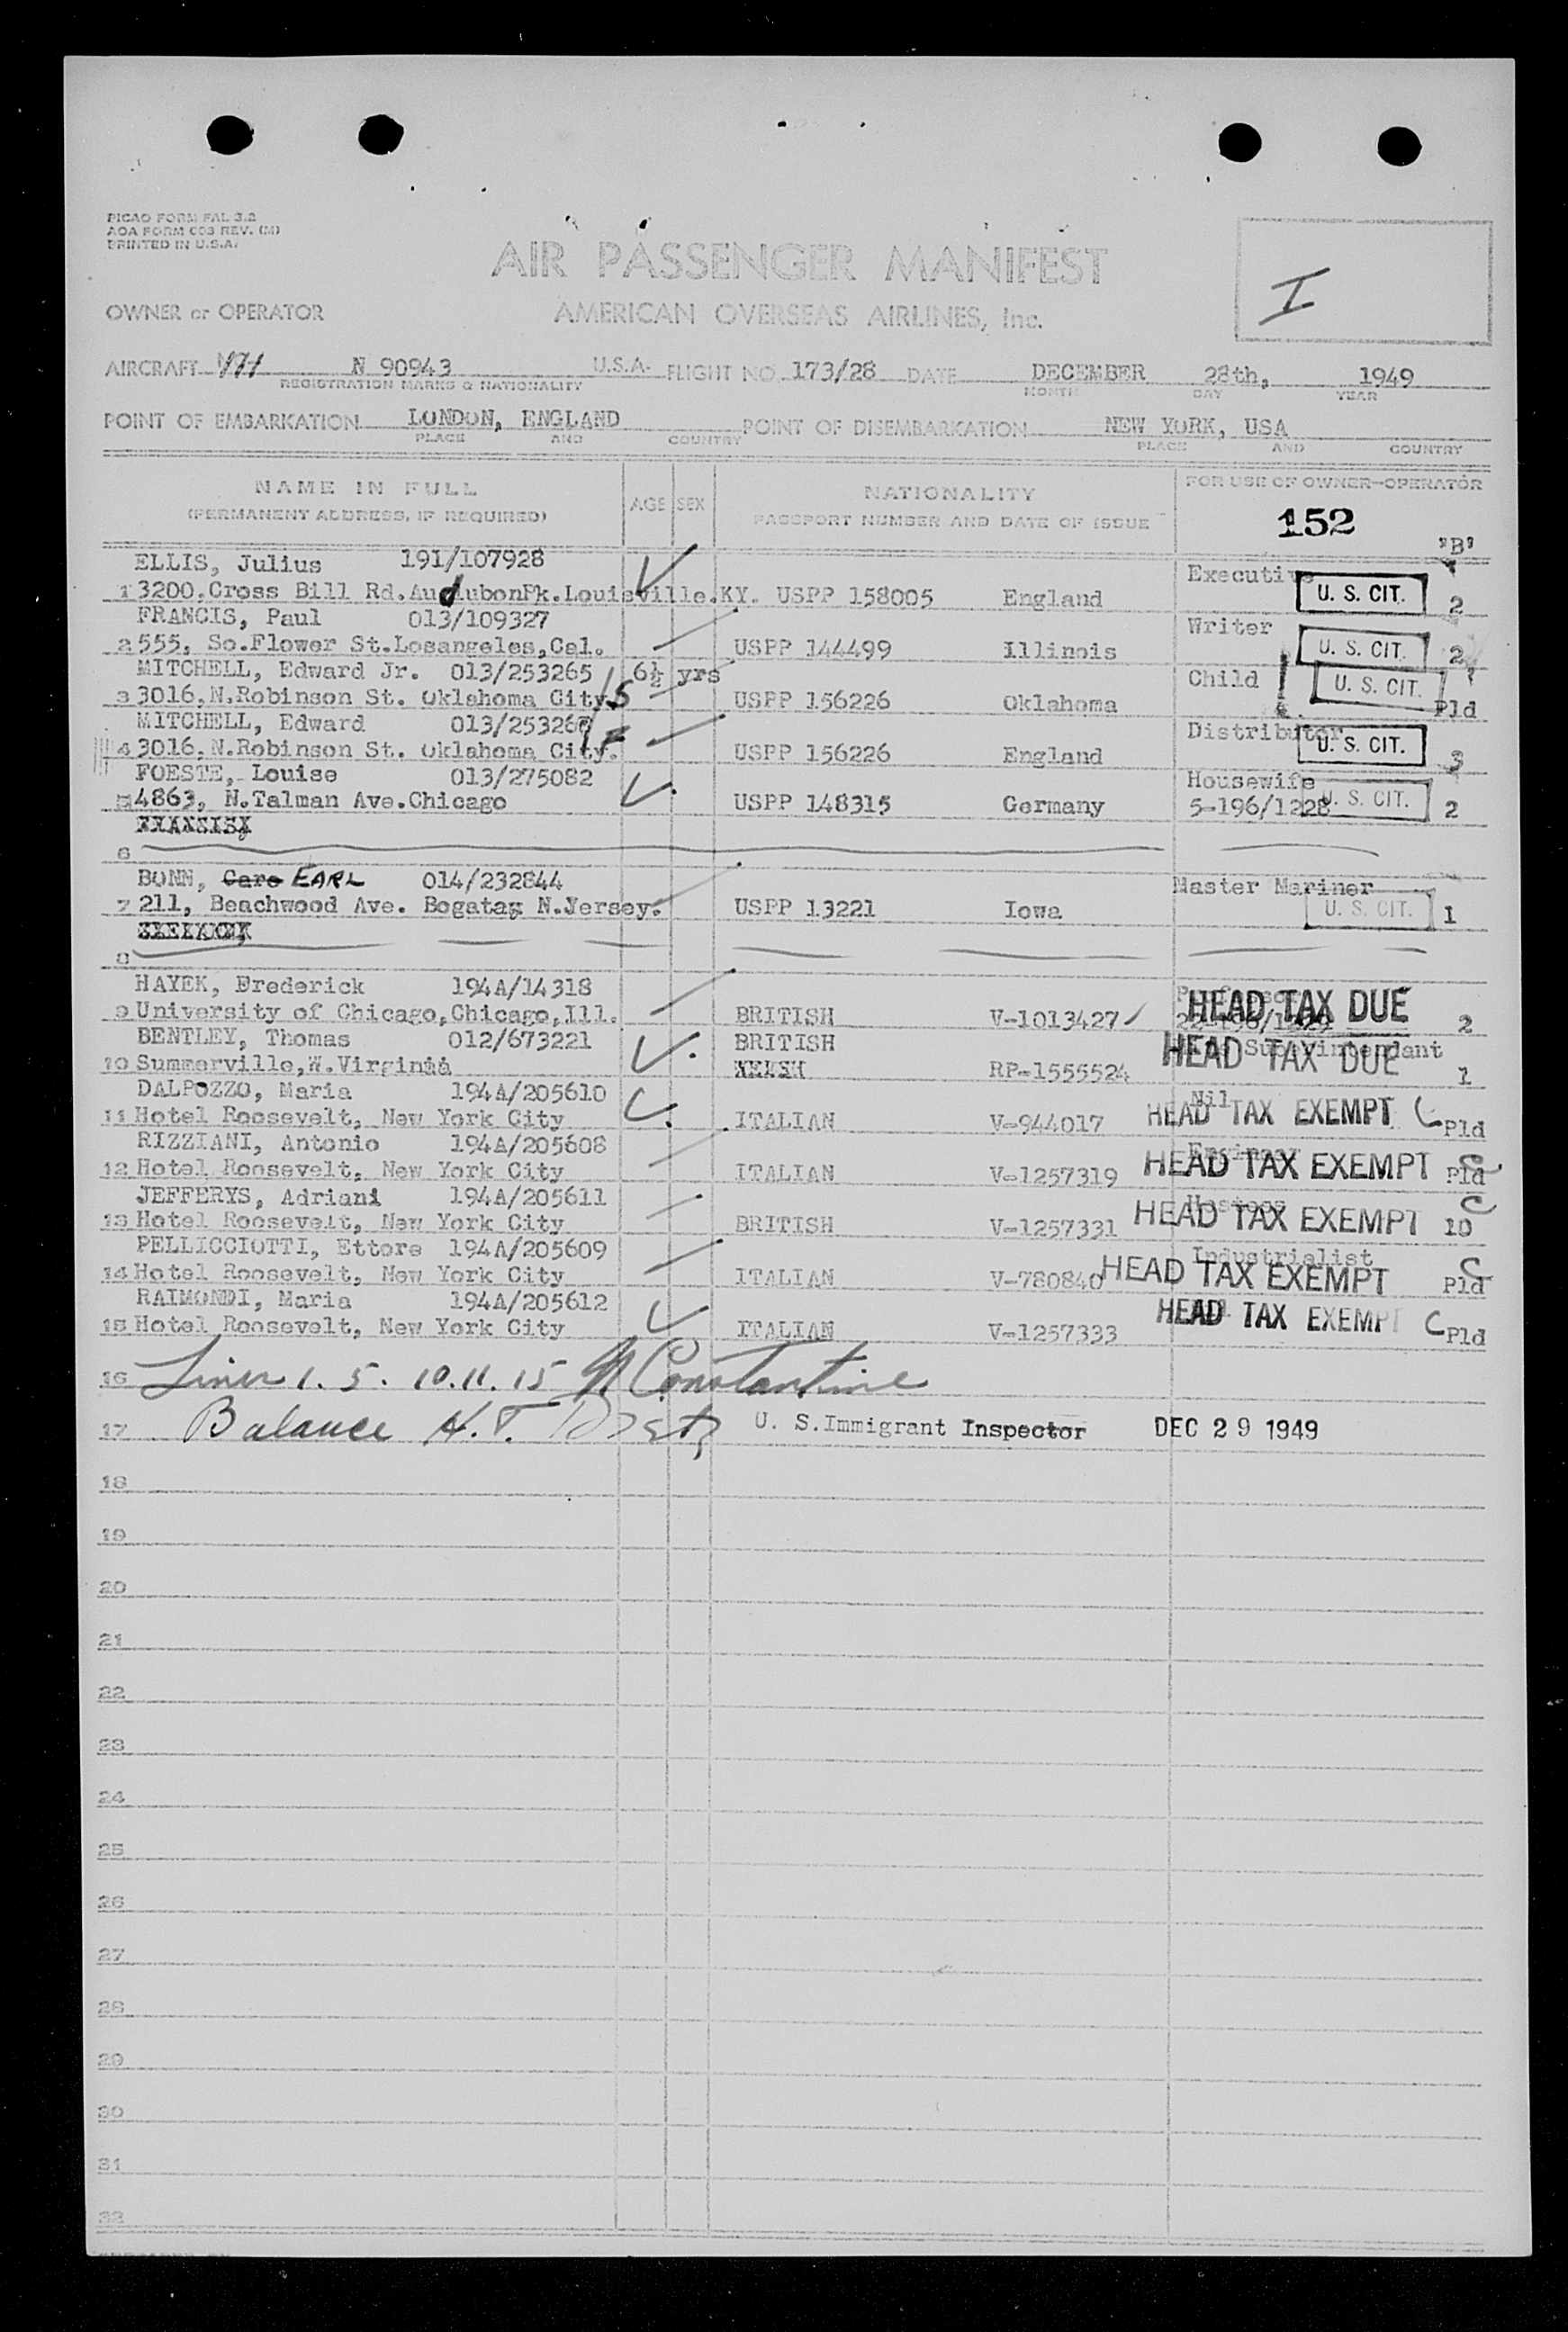 PICAO FORM FAL 3.2
AOA FORM 603 REV. (M)
PRINTED IN U.S.A.
AIR PASSENGER MANIFEST
I
OWNER or OPERATOR AMERICAN OVERSEAS AIRLINES, Inc.
AIRCRAFT N 90943 U.S.A. FLIGHT NO. 173/28 DATE DECEMBER 28th, 1949
REGISTRATION MARKS & NATIONALITY MONTH DAY YEAR
POINT OF EMBARKATION LONDON, ENGLAND POINT OF DISEMBARKATION NEW YORK, USA
PLACE AND COUNTRY PLACE AND COUNTRY
NAME IN FULL AGE SEX NATIONALITY FOR USE OF OWNER-OPERATOR
(PERMANENT ADDRESS, IF REQUIRED) PASSPORT NUMBER AND DATE OF ISSUE 152
"B"
ELLIS, Julius 191/107928 Executive
1 3200.Cross Bill Rd.AudubonPk.Louisville.KY. USPP 158005 England U. S. CIT. 2
FRANCIS, Paul 013/109327 Writer
2 555, So.Flower St.Losangeles,Cal. USPP 144499 Illinois U. S. CIT. 2
MITCHELL, Edward Jr. 013/253265 6½ yrs Child
3 3016.N.Robinson St. Oklahoma City. USPP 156226 Oklahoma U. S. CIT. Pld
MITCHELL, Edward 013/25326 Distributor
4 3016.N.Robinson St. Oklahoma City. USPP 156226 England U. S. CIT. 3
FOESTE, Louise 013/275082 Housewife
5 4863, N.Talman Ave.Chicago USPP 148315 Germany 5-196/1228 U. S. CIT. 2
6
BONN, Care EARL 014/232844 Master Mariner
7 211, Beachwood Ave. Bogata N.Jersey. USPP 13221 Iowa U. S. CIT. 1
8
HAYEK, Frederick 194A/14318
9 University of Chicago,Chicago,Ill. BRITISH V-1013427 HEAD TAX DUE 2
BENTLEY, Thomas 012/673221 BRITISH
10 Summerville,W.Virginia RP-1555524 HEAD TAX DUE 1
DALPOZZO, Maria 194A/205610 Nil
11 Hotel Roosevelt, New York City ITALIAN V-944017 HEAD TAX EXEMPT C Pld
RIZZIANI, Antonio 194A/205608 Engineer
12 Hotel Roosevelt, New York City ITALIAN V-1257319 HEAD TAX EXEMPT C Pld
JEFFERYS, Adriani 194A/205611
13 Hotel Roosevelt, New York City BRITISH V-1257331 HEAD TAX EXEMPT C 10
PELLICCIOTTI, Ettore 194A/205609 Industrialist
14 Hotel Roosevelt, New York City ITALIAN V-780840 HEAD TAX EXEMPT C Pld
RAIMONDI, Maria 194A/205612
15 Hotel Roosevelt, New York City ITALIAN V-1257333 HEAD TAX EXEMPT C Pld
16 Lines 1. 5. 10. 11. 15 Constantine
17 Balance H.T. U. S. Immigrant Inspector DEC 29 1949
18
19
20
21
22
23
24
25
26
27
28
29
30
31
32